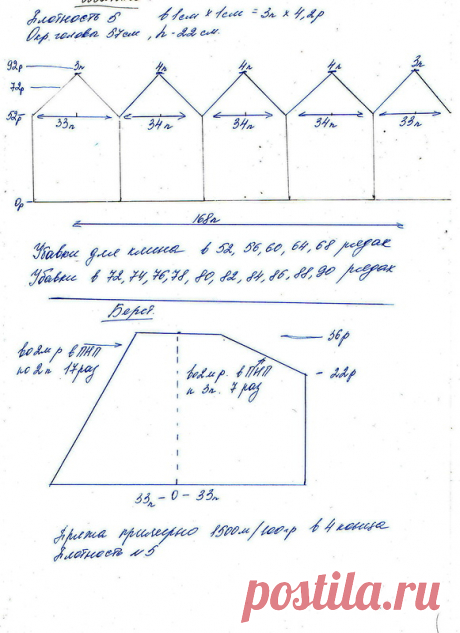 Плотность 5 в 1см × 1см = 3п × 4,2р
Окр. голова 57см, h - 22см.
92р 3п 4п 4п 4п 3п
72р
52р 33п 34п 34п 34п 33п
0р
168п
Убавки для клина в 52, 56, 60, 64, 68 рядах
Убавки в 72, 74, 76, 78, 80, 82, 84, 86, 88, 90 рядах
Берет
36р
во 2м р в ПНП
по 2п 17 раз
во 2м р. в ПНП
п 3п. 7 раз
- 22р
33п - 0 - 33п
Пряжа примерно 1500м/100гр в 4 конца
Плотность № 5
postila.ru